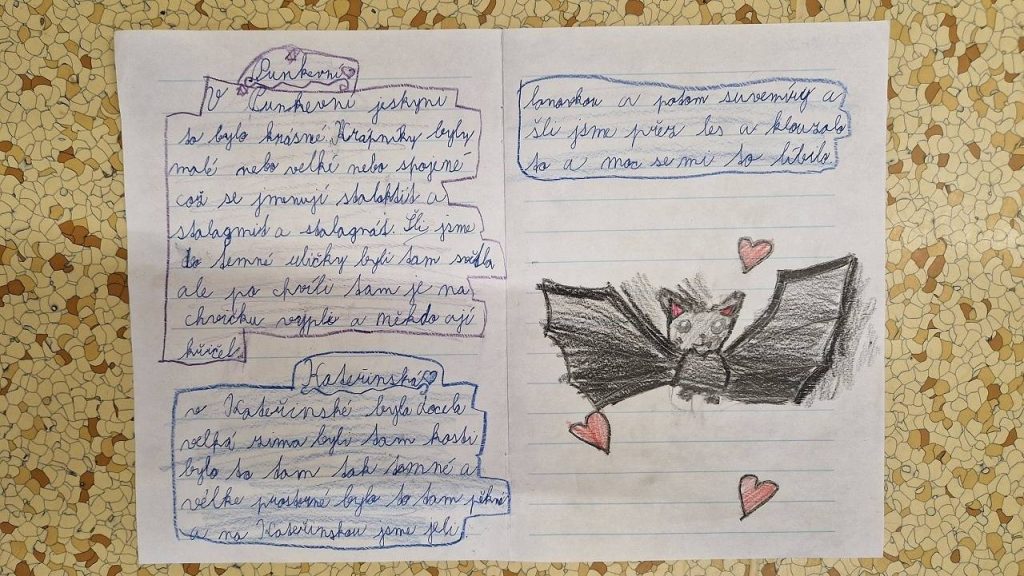 Punkevní
V Punkevní jeskyni
to bylo krásné. Krápníky byly
malé nebo velké nebo spojené
což se jmenují stalaktit a
stalagmit a stalagnát. Šli jsme
do temné uličky byli tam světla
ale po chvíli tam je na
chvilku vyplí a někdo ají
křičel.
Kateřinská
v Kateřinské byla docela
velká zima byli tam kosti
bylo to tam tak temné a
vélke prostorné bylo to tam pěkné
a na Kateřinskou jsme jeli
lanovkou a potom suvenýry a
šli jsme přez les a klouzalo
to a moc se mi to líbilo